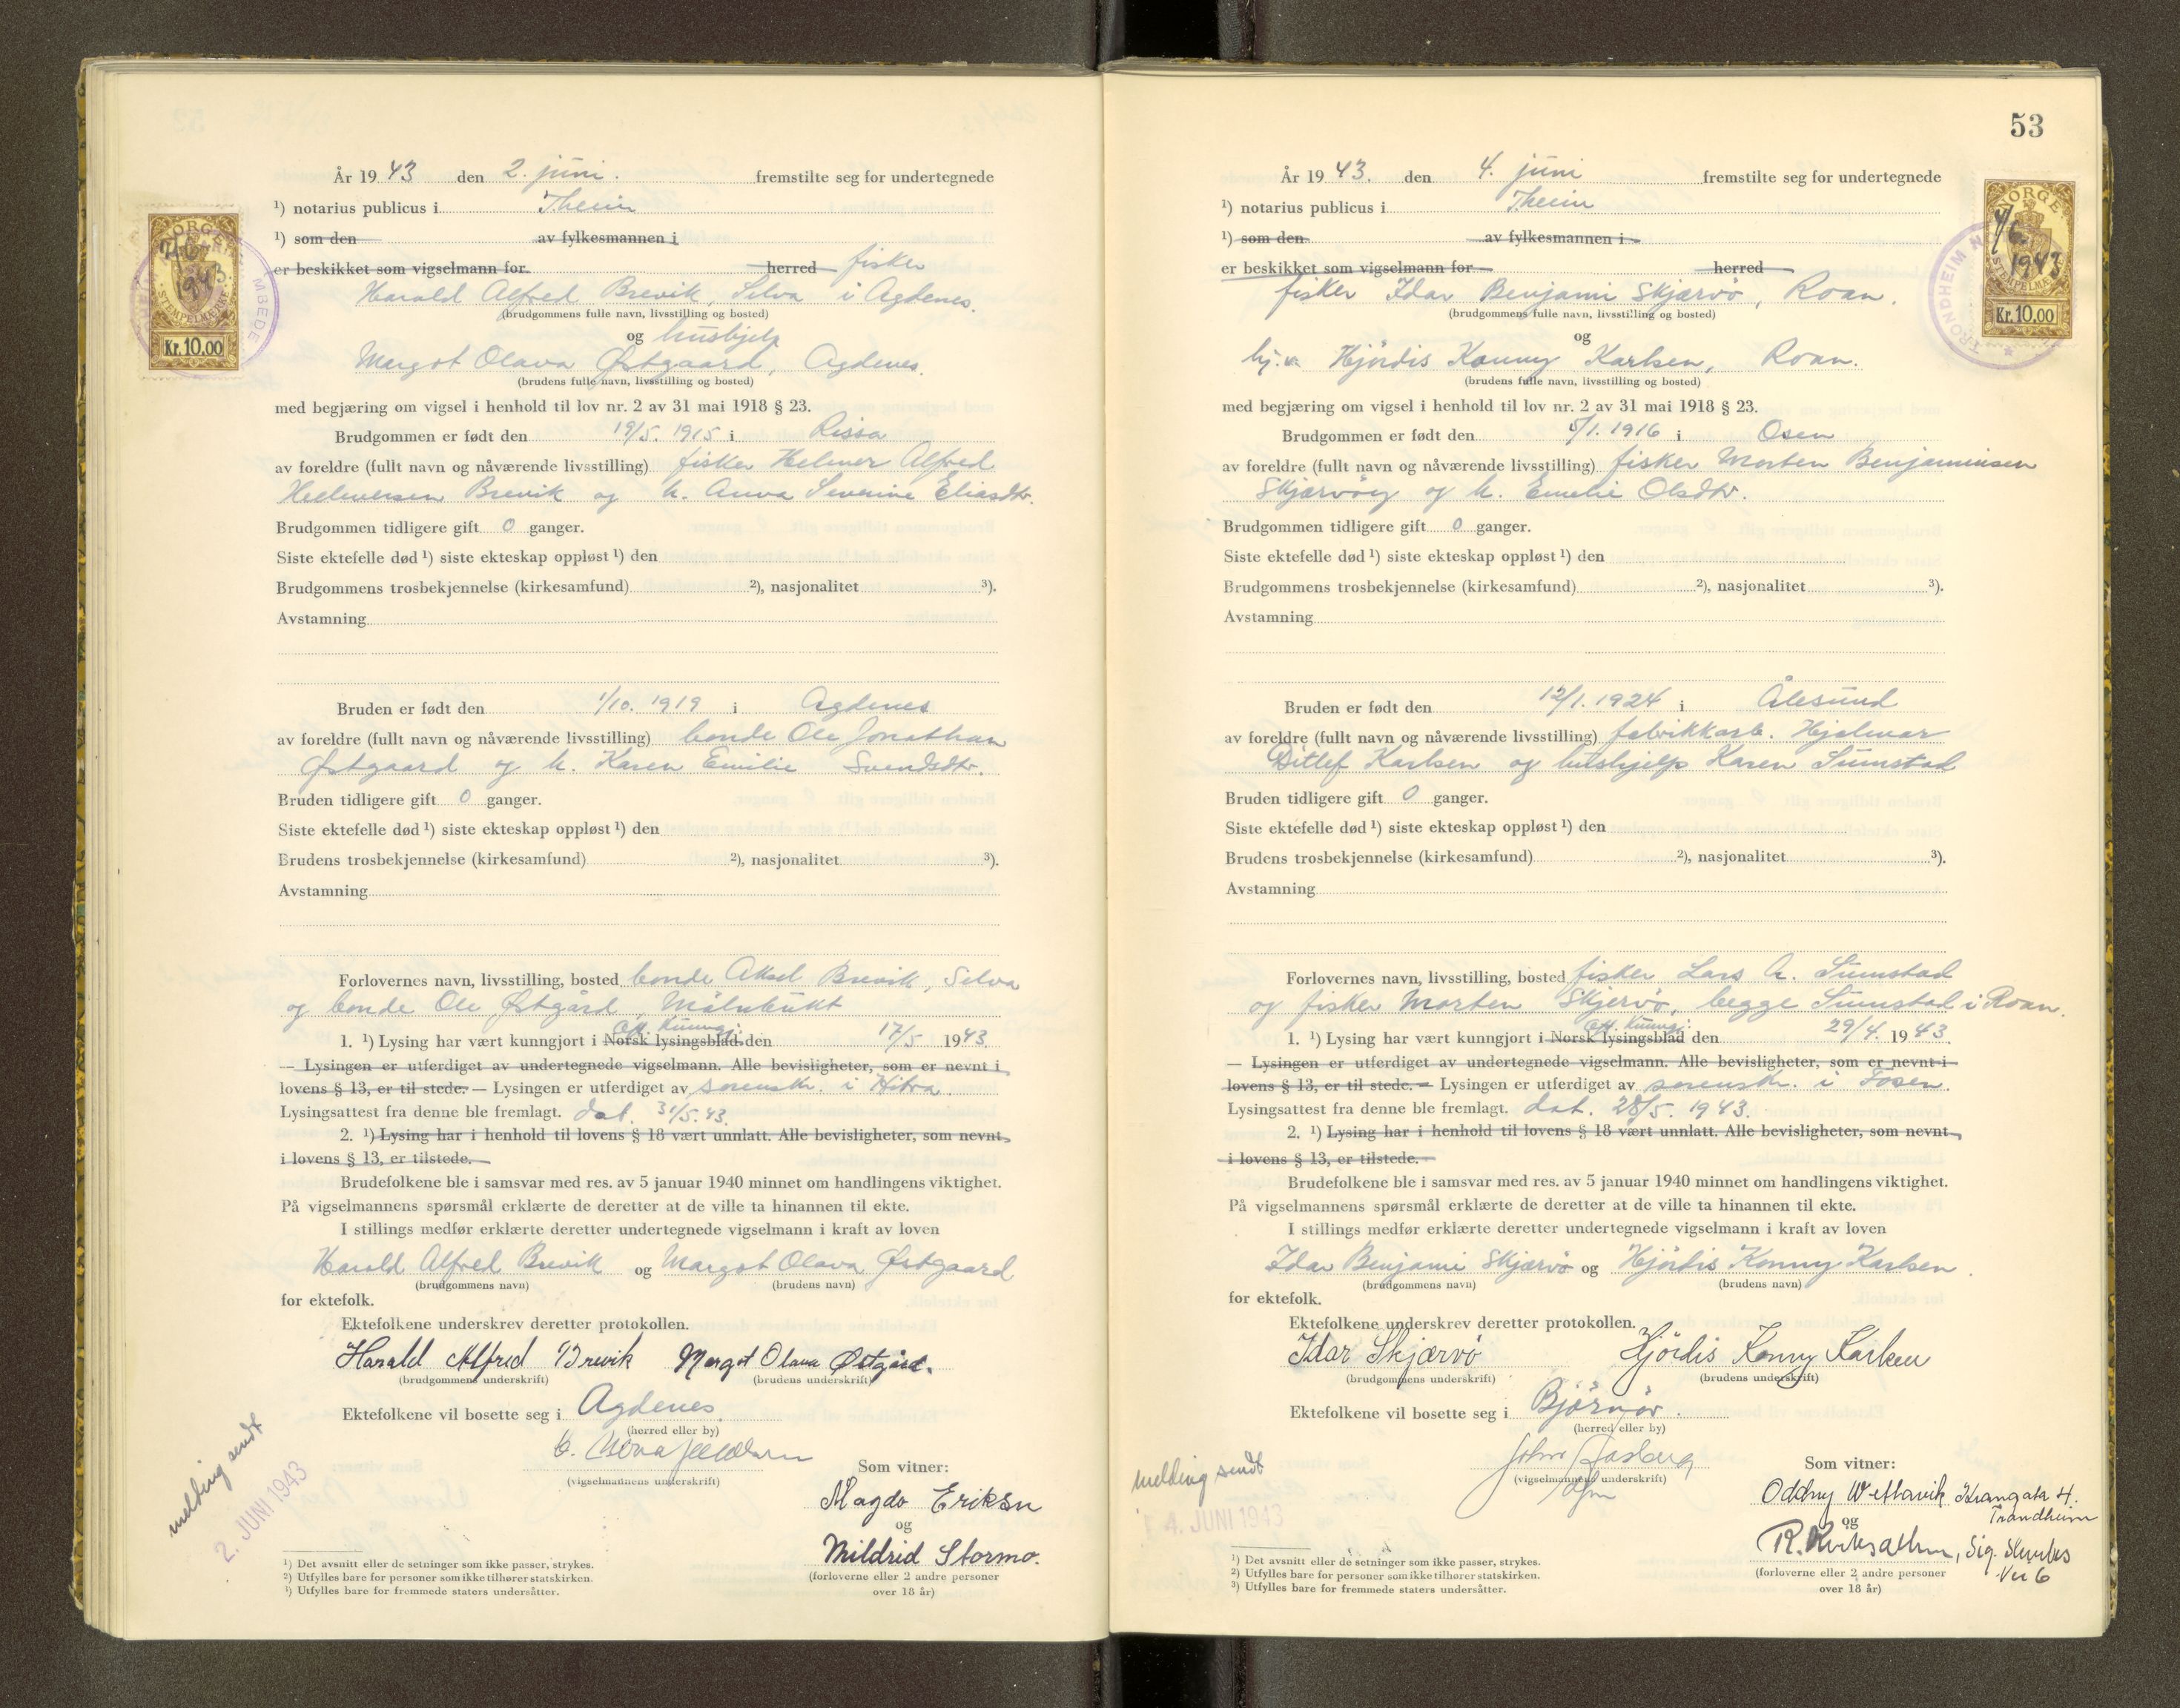 År 1943 den 2. juni. fremstilte seg for undertegnede
¹) notarius publicus i Theim
¹) som den av fylkesmannen i
er beskikket som vigselmann for herred fisker
Harald Alfred Brevik, Selva i Agdenes.
(brudgommens fulle navn, livsstilling og bosted)
og hushjelp
Margot Olava Østgaard, Agdenes.
(brudens fulle navn, livsstilling og bosted)
med begjæring om vigsel i henhold til lov nr. 2 av 31 mai 1918 § 23.
Brudgommen er født den 19/5. 1915 i Rissa
av foreldre (fullt navn og nåværende livsstilling) fisker Helmer Alfred
Helmersen Brevik og h. Anna Severine Eliasdtr.
Brudgommen tidligere gift 0 ganger.
Siste ektefelle død ¹) siste ekteskap oppløst ¹) den
Brudgommens trosbekjennelse (kirkesamfund) ²), nasjonalitet ³).
Avstamning
Bruden er født den 1/10. 1919 i Agdenes
av foreldre (fullt navn og nåværende livsstilling) bonde Ole Jonathan
Østgaard og h. Karen Emilie Svendsdtr.
Bruden tidligere gift 0 ganger.
Siste ektefelle død ¹) siste ekteskap oppløst ¹) den
Brudens trosbekjennelse (kirkesamfund) ²), nasjonalitet ³).
Avstamning
Forlovernes navn, livsstilling, bosted bonde Aksel Brevik, Selva
og bonde Ole Østgård, Mølnbukt
off. kunngj.
1. ¹) Lysing har vært kunngjort i Norsk lysingsblad den 17/5 1943.
— Lysingen er utferdiget av undertegnede vigselmann. Alle bevisligheter, som er nevnt i
lovens § 13, er til stede. — Lysingen er utferdiget av sorenskr. i Hitra.
Lysingsattest fra denne ble fremlagt. dat. 31/5. 43.
2. ¹) Lysing har i henhold til lovens § 18 vært unnlatt. Alle bevisligheter, som nevnt
i lovens § 13, er tilstede. —
Brudefolkene ble i samsvar med res. av 5 januar 1940 minnet om handlingens viktighet.
På vigselmannens spørsmål erklærte de deretter at de ville ta hinannen til ekte.
I stillings medfør erklærte deretter undertegnede vigselmann i kraft av loven
Harald Alfred Brevik og Margot Olava Østgaard
(brudgommens navn) (brudens navn)
for ektefolk.
Ektefolkene underskrev deretter protokollen.
Harald Alfred Brevik Margot Olava Østgård.
(brudgommens underskrift) (brudens underskrift)
Ektefolkene vil bosette seg i Agdenes.
(herred eller by)
(vigselmannens underskrift)
Som vitner:
Magda Eriksen
og
Mildrid Stormo.
(forloverne eller 2 andre personer
over 18 år)
melding sendt
2. JUNI 1943
¹) Det avsnitt eller de setninger som ikke passer, strykes.
²) Utfylles bare for personer som ikke tilhører statskirken.
³) Utfylles bare for fremmede staters undersåtter.
NORGE
2/6
1943.
STEMPELMERKE
Kr. 10.00
53
År 1943. den 4. juni fremstilte seg for undertegnede
¹) notarius publicus i Theim
¹) som den av fylkesmannen i
er beskikket som vigselmann for herred
fisker Idar Benjamin Skjærvø, Roan.
(brudgommens fulle navn, livsstilling og bosted)
og
hj.v. Hjördis Konny Karlsen, Roan.
(brudens fulle navn, livsstilling og bosted)
med begjæring om vigsel i henhold til lov nr. 2 av 31 mai 1918 § 23.
Brudgommen er født den 5/1. 1916 i Osen
av foreldre (fullt navn og nåværende livsstilling) fisker Morten Benjaminsen
Skjærvøy og h. Emelie Olsdtr.
Brudgommen tidligere gift 0 ganger.
Siste ektefelle død ¹) siste ekteskap oppløst ¹) den
Brudgommens trosbekjennelse (kirkesamfund) ²), nasjonalitet ³).
Avstamning
Bruden er født den 12/1. 1924 i Ålesund
av foreldre (fullt navn og nåværende livsstilling) fabrikkarb. Hjalmar
Ditlef Karlsen og hushjelp Karen Sumstad
Bruden tidligere gift 0 ganger.
Siste ektefelle død ¹) siste ekteskap oppløst ¹) den
Brudens trosbekjennelse (kirkesamfund) ²), nasjonalitet ³).
Avstamning
Forlovernes navn, livsstilling, bosted fisker Lars A. Sumstad
og fisker Morten Skjervø, begge Sumstad i Roan.
off. kunngj.
1. ¹) Lysing har vært kunngjort i Norsk lysingsblad den 29/4. 1943.
— Lysingen er utferdiget av undertegnede vigselmann. Alle bevisligheter, som er nevnt i
lovens § 13, er til stede. — Lysingen er utferdiget av sorenskr. i Fosen.
Lysingsattest fra denne ble fremlagt. dat. 28/5. 1943.
2. ¹) Lysing har i henhold til lovens § 18 vært unnlatt. Alle bevisligheter, som nevnt
i lovens § 13, er tilstede. —
Brudefolkene ble i samsvar med res. av 5 januar 1940 minnet om handlingens viktighet.
På vigselmannens spørsmål erklærte de deretter at de ville ta hinannen til ekte.
I stillings medfør erklærte deretter undertegnede vigselmann i kraft av loven
Idar Benjamin Skjærvø og Hjördis Konny Karlsen
(brudgommens navn) (brudens navn)
for ektefolk.
Ektefolkene underskrev deretter protokollen.
Idar Skjærvö Hjördis Konny Karlsen
(brudgommens underskrift) (brudens underskrift)
Ektefolkene vil bosette seg i Björnör.
(herred eller by)
(vigselmannens underskrift)
Som vitner:
Oddny Wettavik Krangata 4.
Trondheim
og
(forloverne eller 2 andre personer
over 18 år)
melding sendt
4. JUNI 1943
¹) Det avsnitt eller de setninger som ikke passer, strykes.
²) Utfylles bare for personer som ikke tilhører statskirken.
³) Utfylles bare for fremmede staters undersåtter.
NORGE
4/6.
1943
STEMPELMERKE
Kr. 10.00
TRONDHEIM